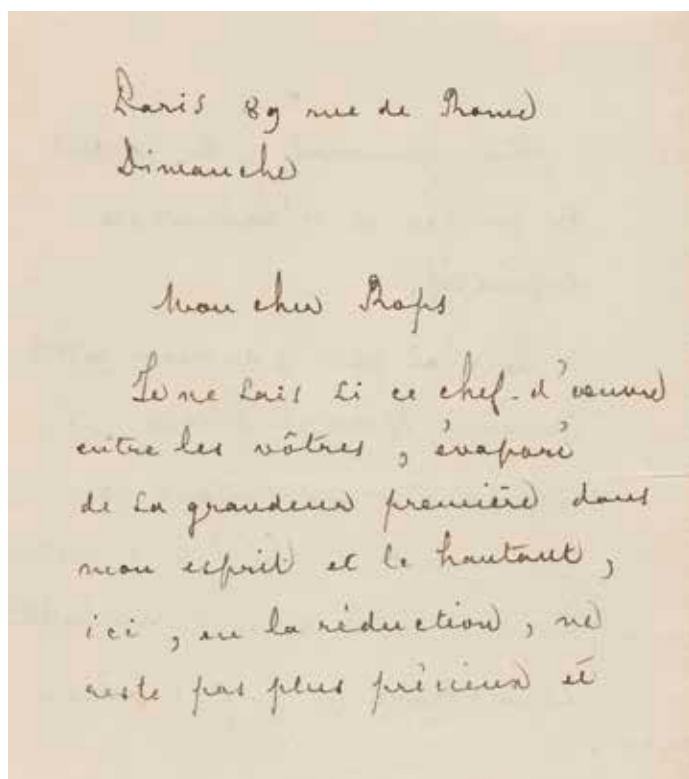 Paris 89 rue de Rome
Dimanche
Mon cher Rops
Je ne sais si ce chef-d'œuvre
entre les vôtres, évaporé
de sa grandeur première dans
mon esprit et le hantant,
ici, en la réduction, ne
reste pas plus précieux et